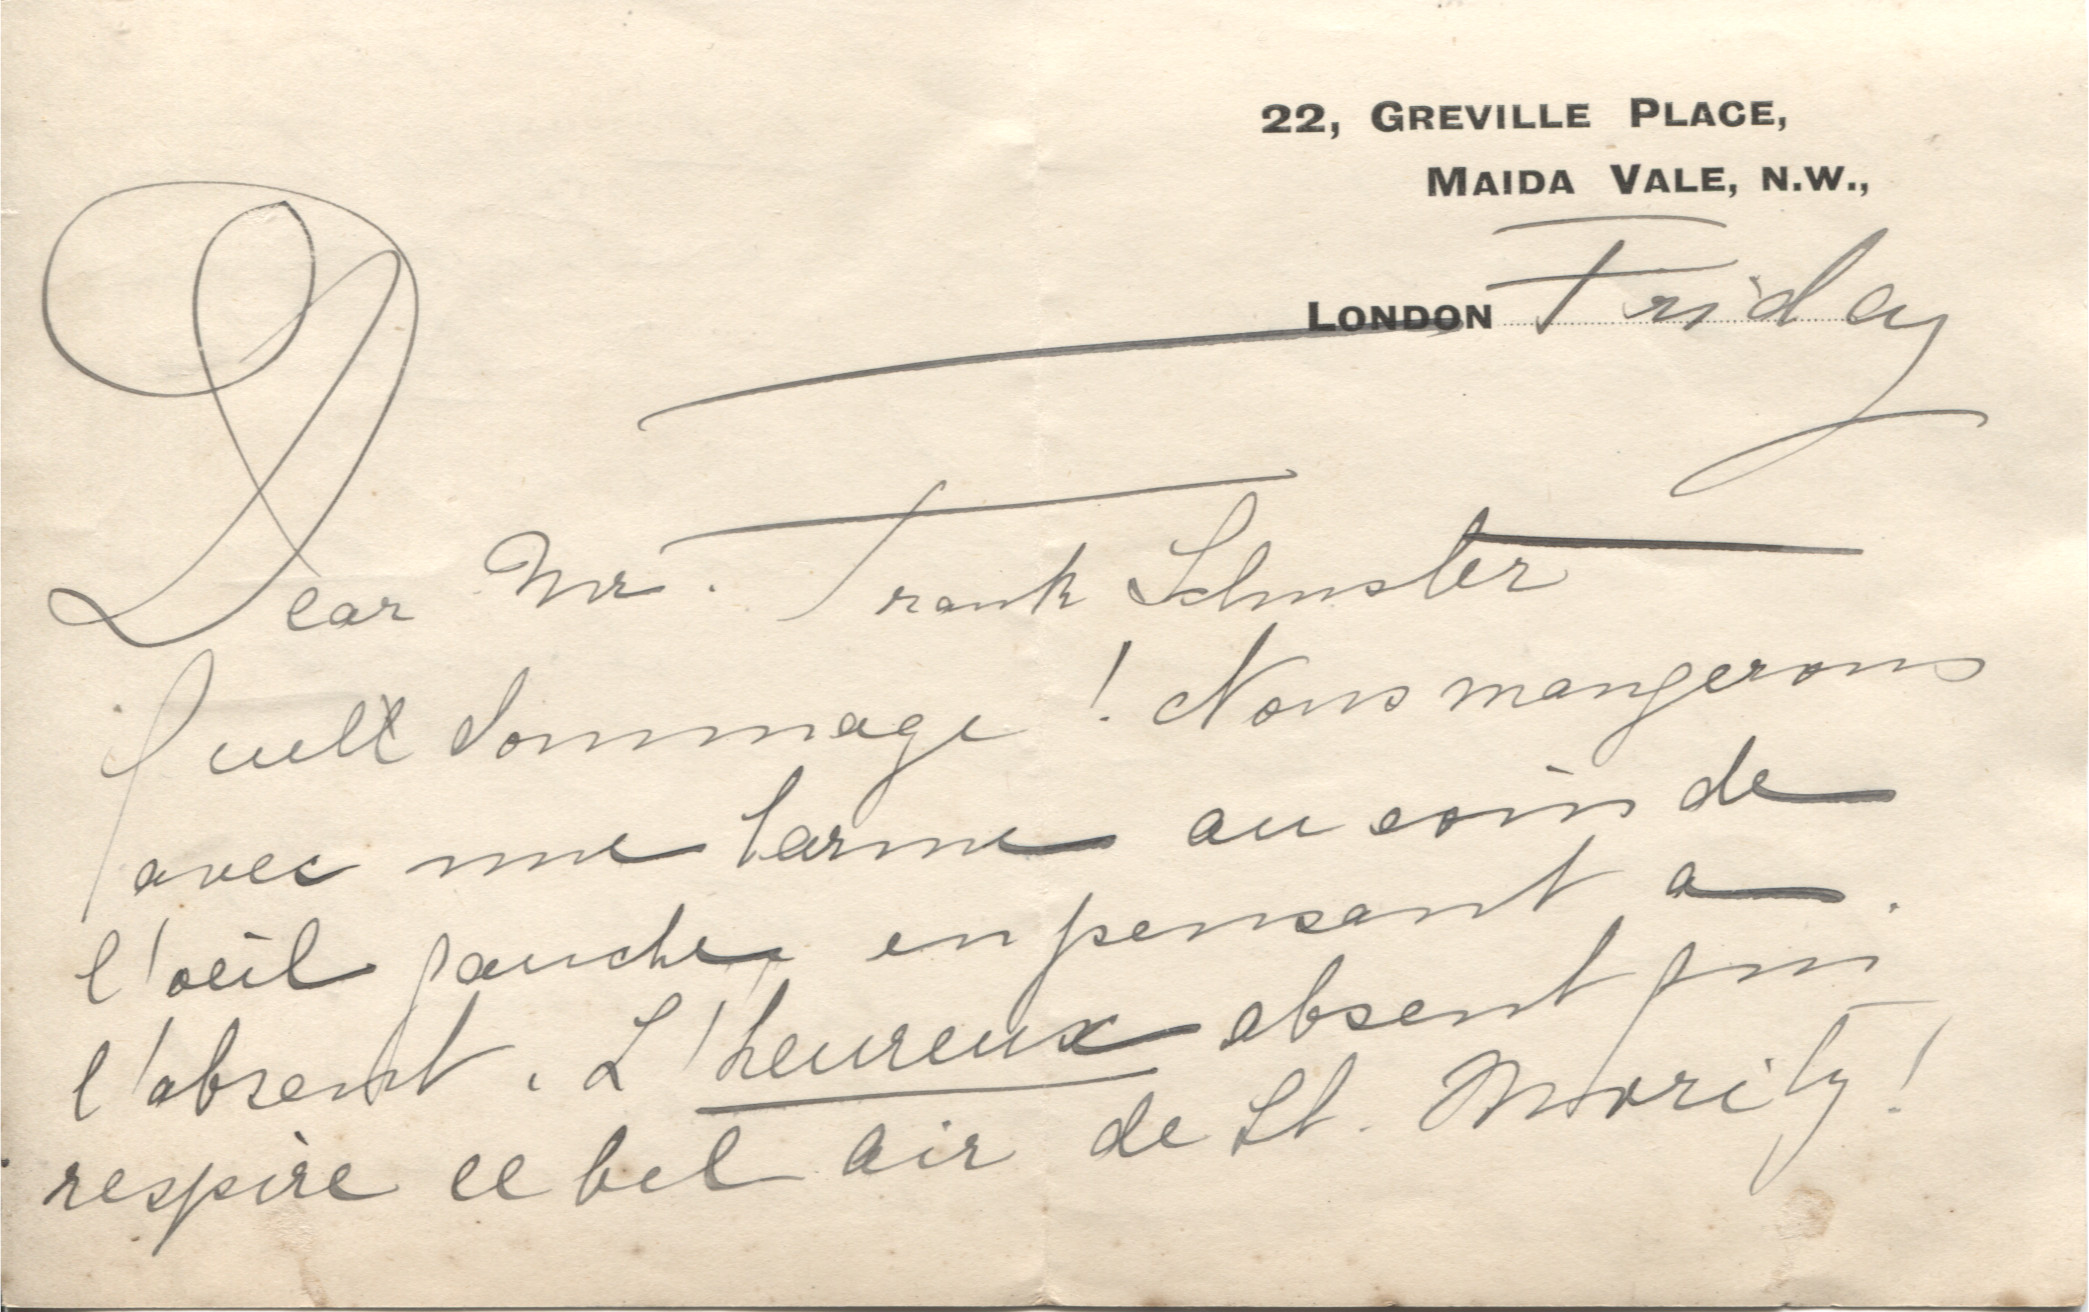 22, GREVILLE PLACE,
MAIDA VALE, N.W.,
LONDON Friday
Dear Mr. Frank Schuster
Quell dommage! Nous mangerons
avec une larme au coin de
l'oeil gauche, en pensant a
l'absent. L'heureux absent qui
respire ce bel air de St. Moritz!